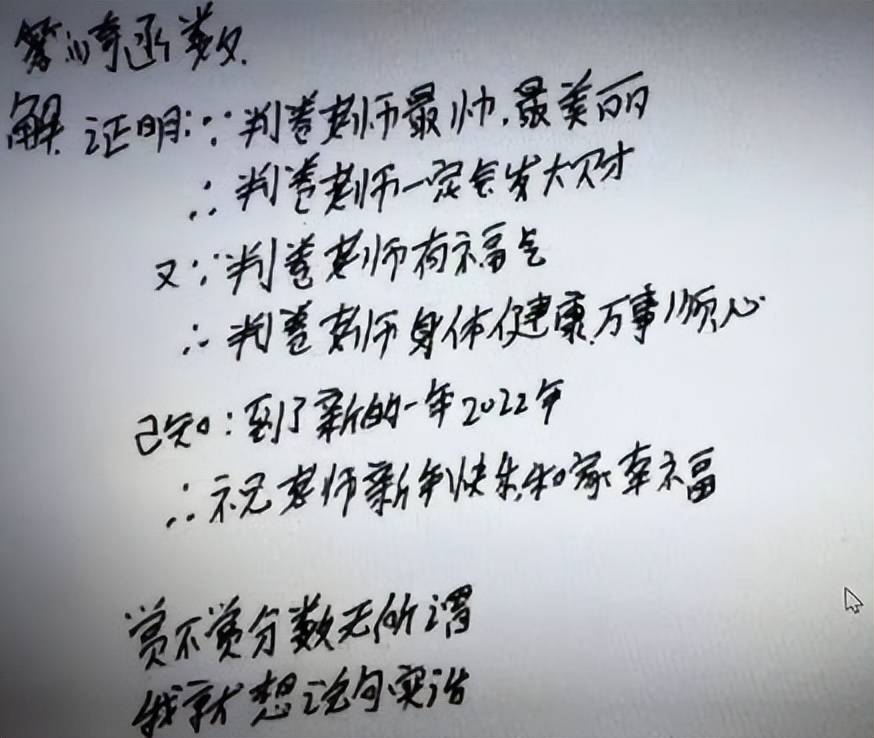 答:奇函数.
解 证明:∵判卷老师最帅,最美丽
∴判卷老师一定会发大财
又∵判卷老师有福气
∴判卷老师身体健康,万事顺心
已知:到了新的一年2022年
∴祝老师新年快乐,阖家幸福
赏不赏分数无所谓
我就想说句实话